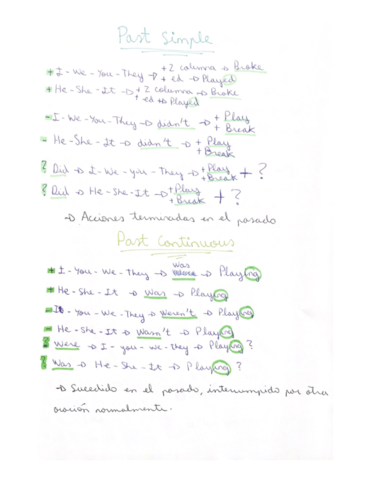 Past Simple
+ I - We - You - They → + 2 columna → Broke
+ ed → Played
+ He - She - It → + 2 columna → Broke
+ ed → Played
- I - We - You - They → didn't → + Play
+ Break
- He - She - It → didn't → + Play
+ Break
? Did → I - We - you - They → + Play + ?
+ Break
? Did → He - She - It → + Play + ?
+ Break
→ Acciones terminadas en el pasado
Past Continuous
was
+ I - You - We - They → were → Playing
+ He - She - It → Was → Playing
- It - You - We - They → Weren't → Playing
- He - She - It → Wasn't → Playing
? Were → I - you - we - they → Playing ?
? Was → He - She - It → Playing ?
→ Sucedido en el pasado, interrumpido por otra
oración normalmente.